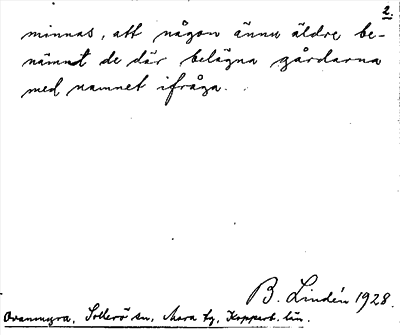 2.
minnas, att någon ännu äldre be-
nämnt de där belägna gårdarna
med namnet ifråga.
B. Lindén 1928.
Ovanmyra, Sollerö sn, Mora tg, Kopparb. län.